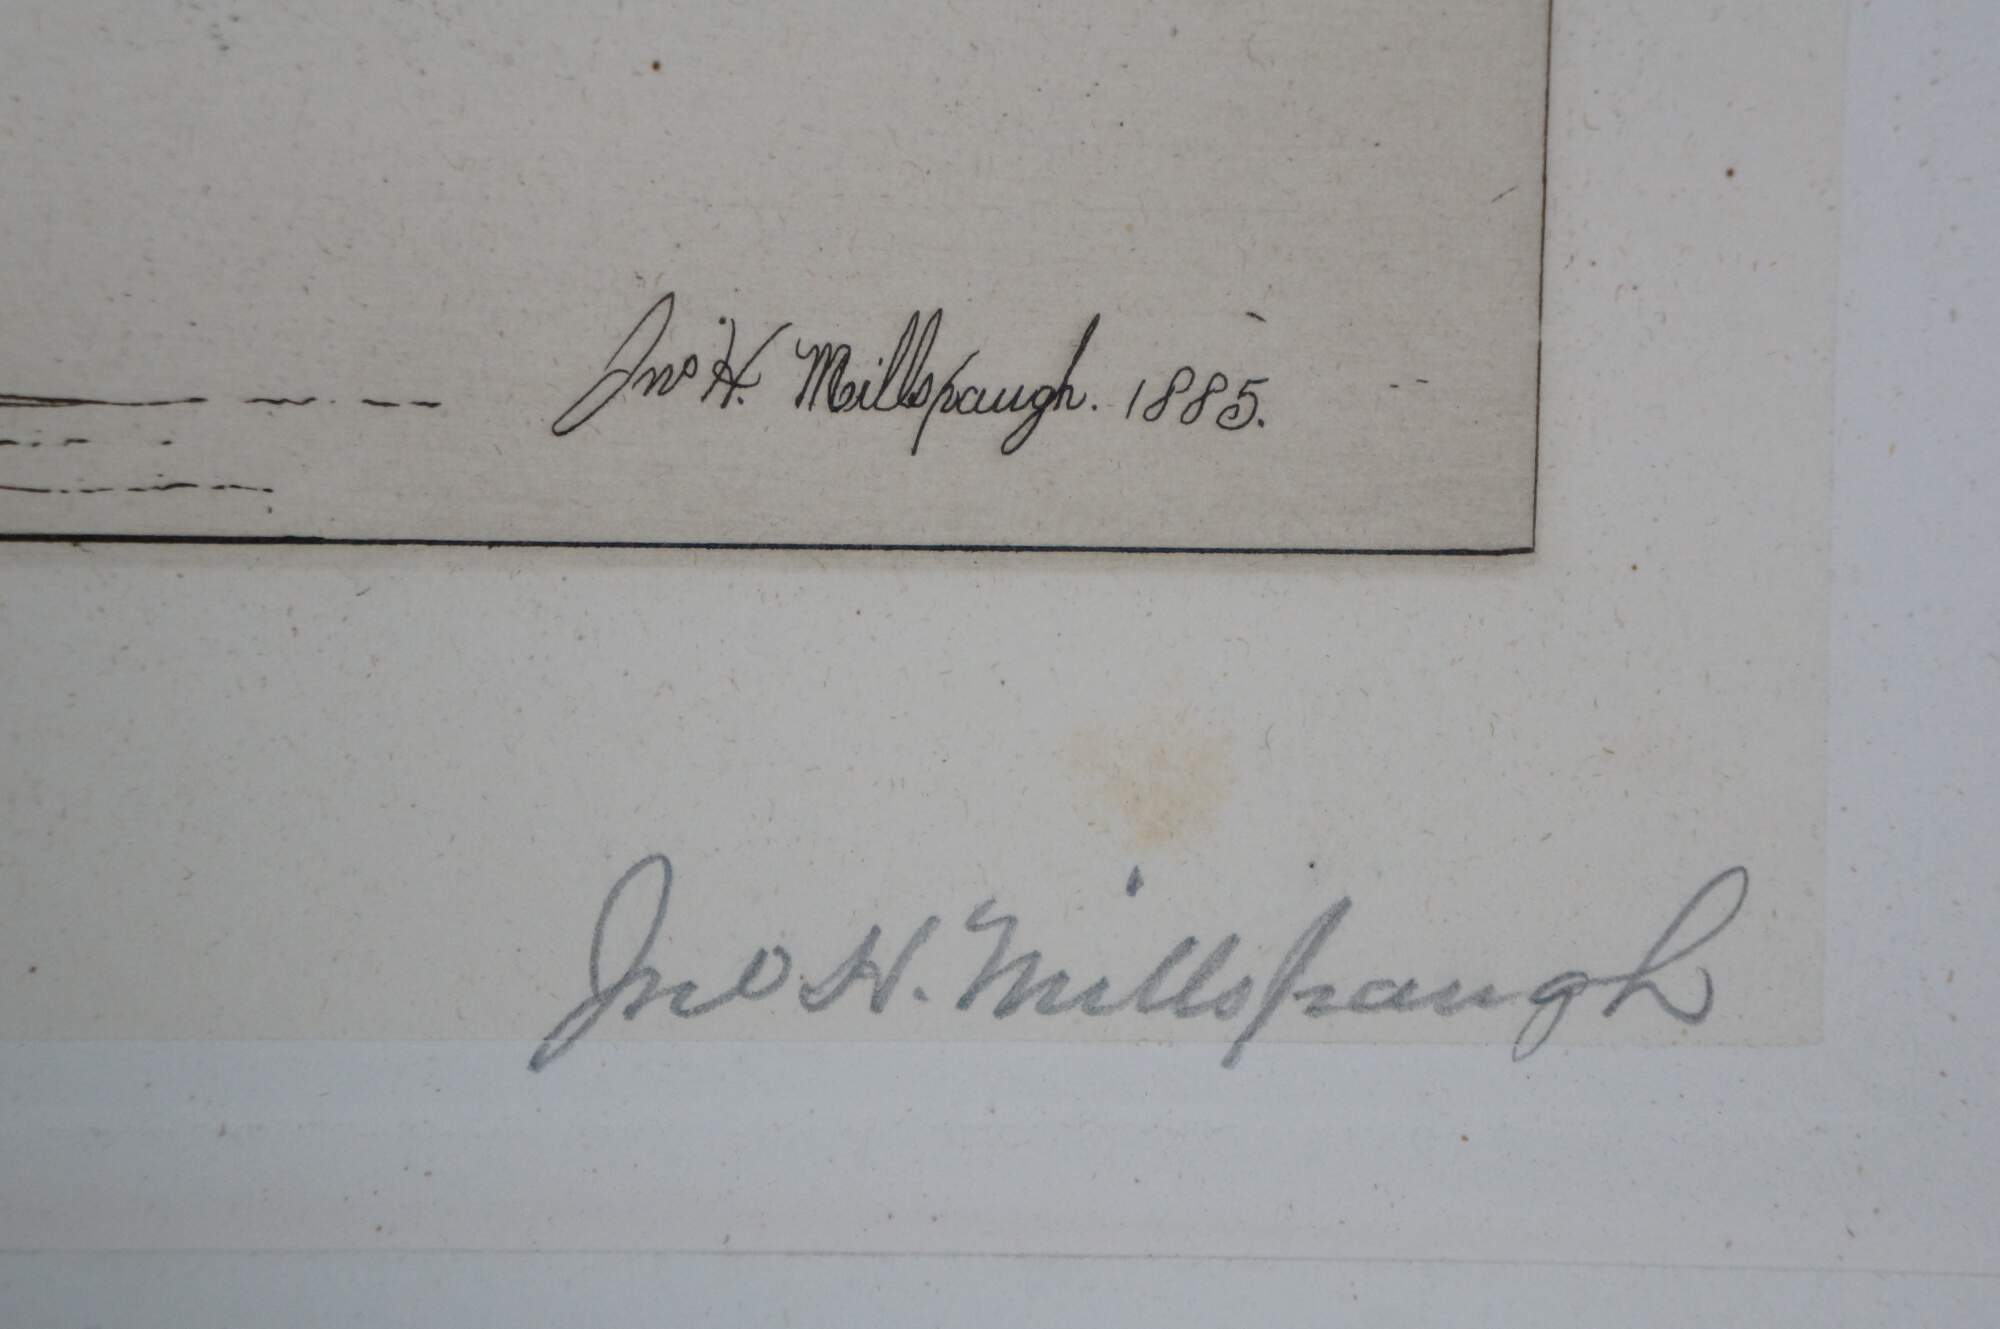 Jno H. Millspaugh. 1885.
Jno H. Millspaugh